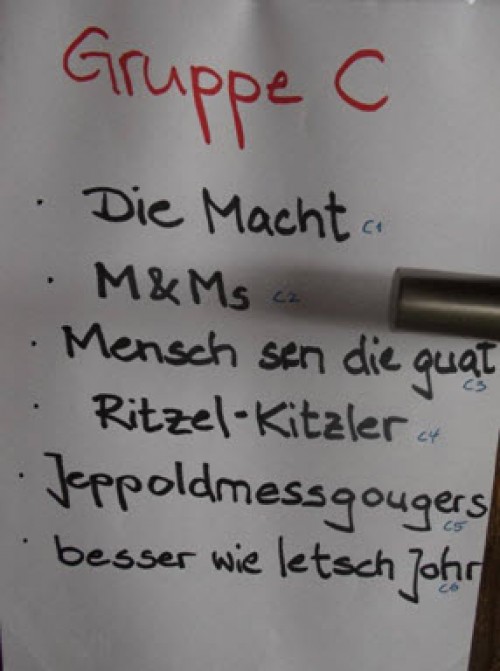 Gruppe C
· Die Macht C1
· M&Ms C2
· Mensch sen die guat C3
· Ritzel-Kitzler C4
· Jeppoldmessgougers C5
· besser wie letsch Johr C6